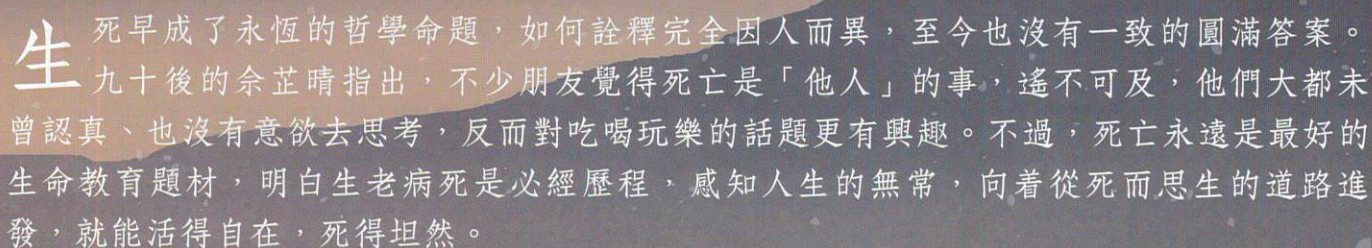 生死早成了永恆的哲學命題，如何詮釋完全因人而異，至今也沒有一致的圓滿答案。
九十後的佘芷晴指出，不少朋友覺得死亡是「他人」的事，遙不可及，他們大都未
曾認真、也沒有意欲去思考，反而對吃喝玩樂的話題更有興趣。不過，死亡永遠是最好的
生命教育題材，明白生老病死是必經歷程，感知人生的無常，向着從死而思生的道路進
發，就能活得自在，死得坦然。